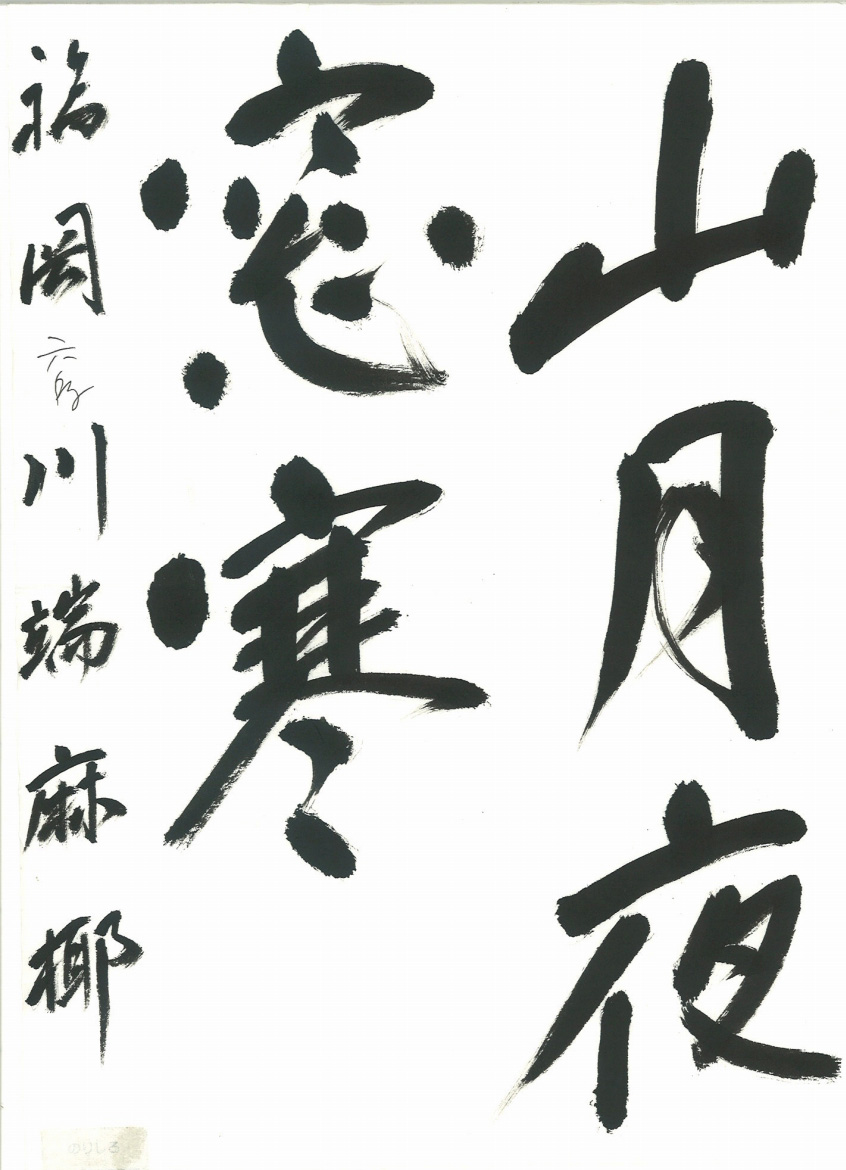 山月夜
窓寒
福岡 六段 川端麻椰
のりしろ